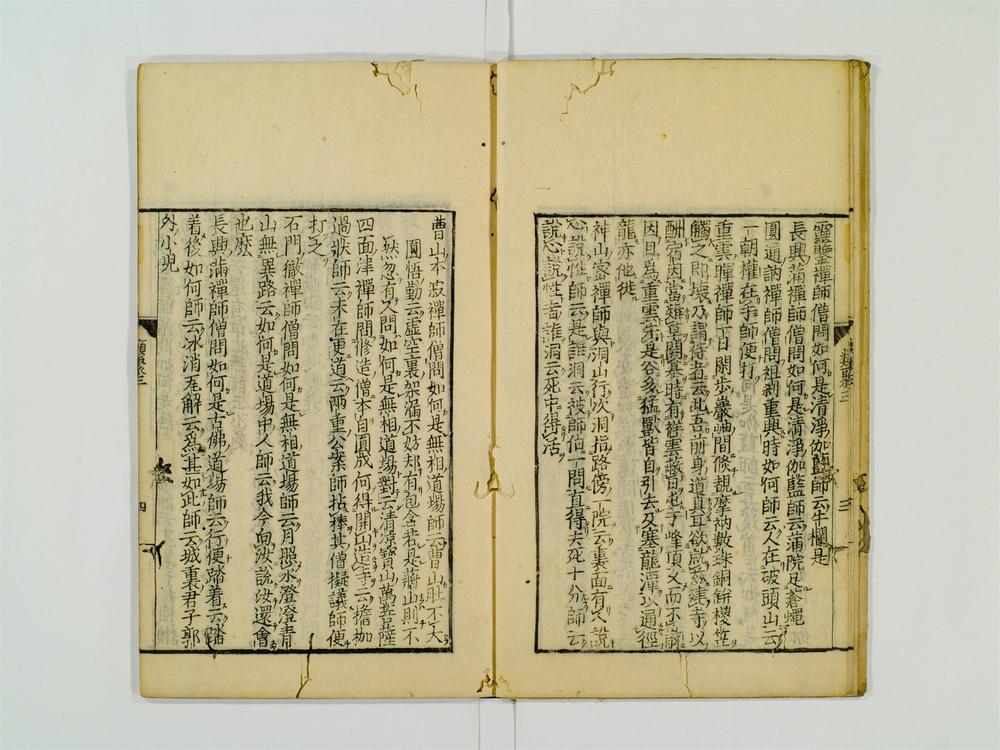 靈鑒禪師僧問如何是清淨伽藍師云牛欄是
長興滿禪師僧問如何是清淨伽藍師云蒲院足蒼蠅
圓通訥禪師僧問祖刹重興時如何師云人在破頭山云
一朝權在手師便打
重雲暉禪師一日閑步巖岫間倐覩摩衲數珠銅餅椶笠
觸之即壞乃謂侍者云此吾前身道具耳欲就茲建寺以
酬宿因當薙草開基時有祥雲蔽日屯于峰頂久而不散
因目爲重雲先是谷多猛獸皆自引去及塞龍潭以通徑
龍亦他徙
神山密禪師與洞山行次洞指路傍一院云裏面有人說
心說性師云是誰洞云被師伯一問直得去死十分師云
說心說性者誰洞云死中得活
類聚三
三
類聚卷三
四
曹山本寂禪師僧問如何是無相道場師云曹山肚不大
圓悟勤云虛空裏架漏不妨却有包含若是蔣山則不
然忽有人問如何是無相道場對云清凉寶山萬丈陡
四面津禪師問修造僧本自圓成何得開山造寺云擔枷
過狀師云未在更道云兩重公案師拈棒其僧擬議師便
打之
石門徹禪師僧問如何是無相道場師云月照水澄澄青
山無異路云如何是道場中人師云我今向汝說汝還會
也麼
長興滿禪師僧問如何是古佛道場師云行便踏着云踏
着後如何師云冰消瓦解云爲甚如此師云城裏君子郭
外小兒